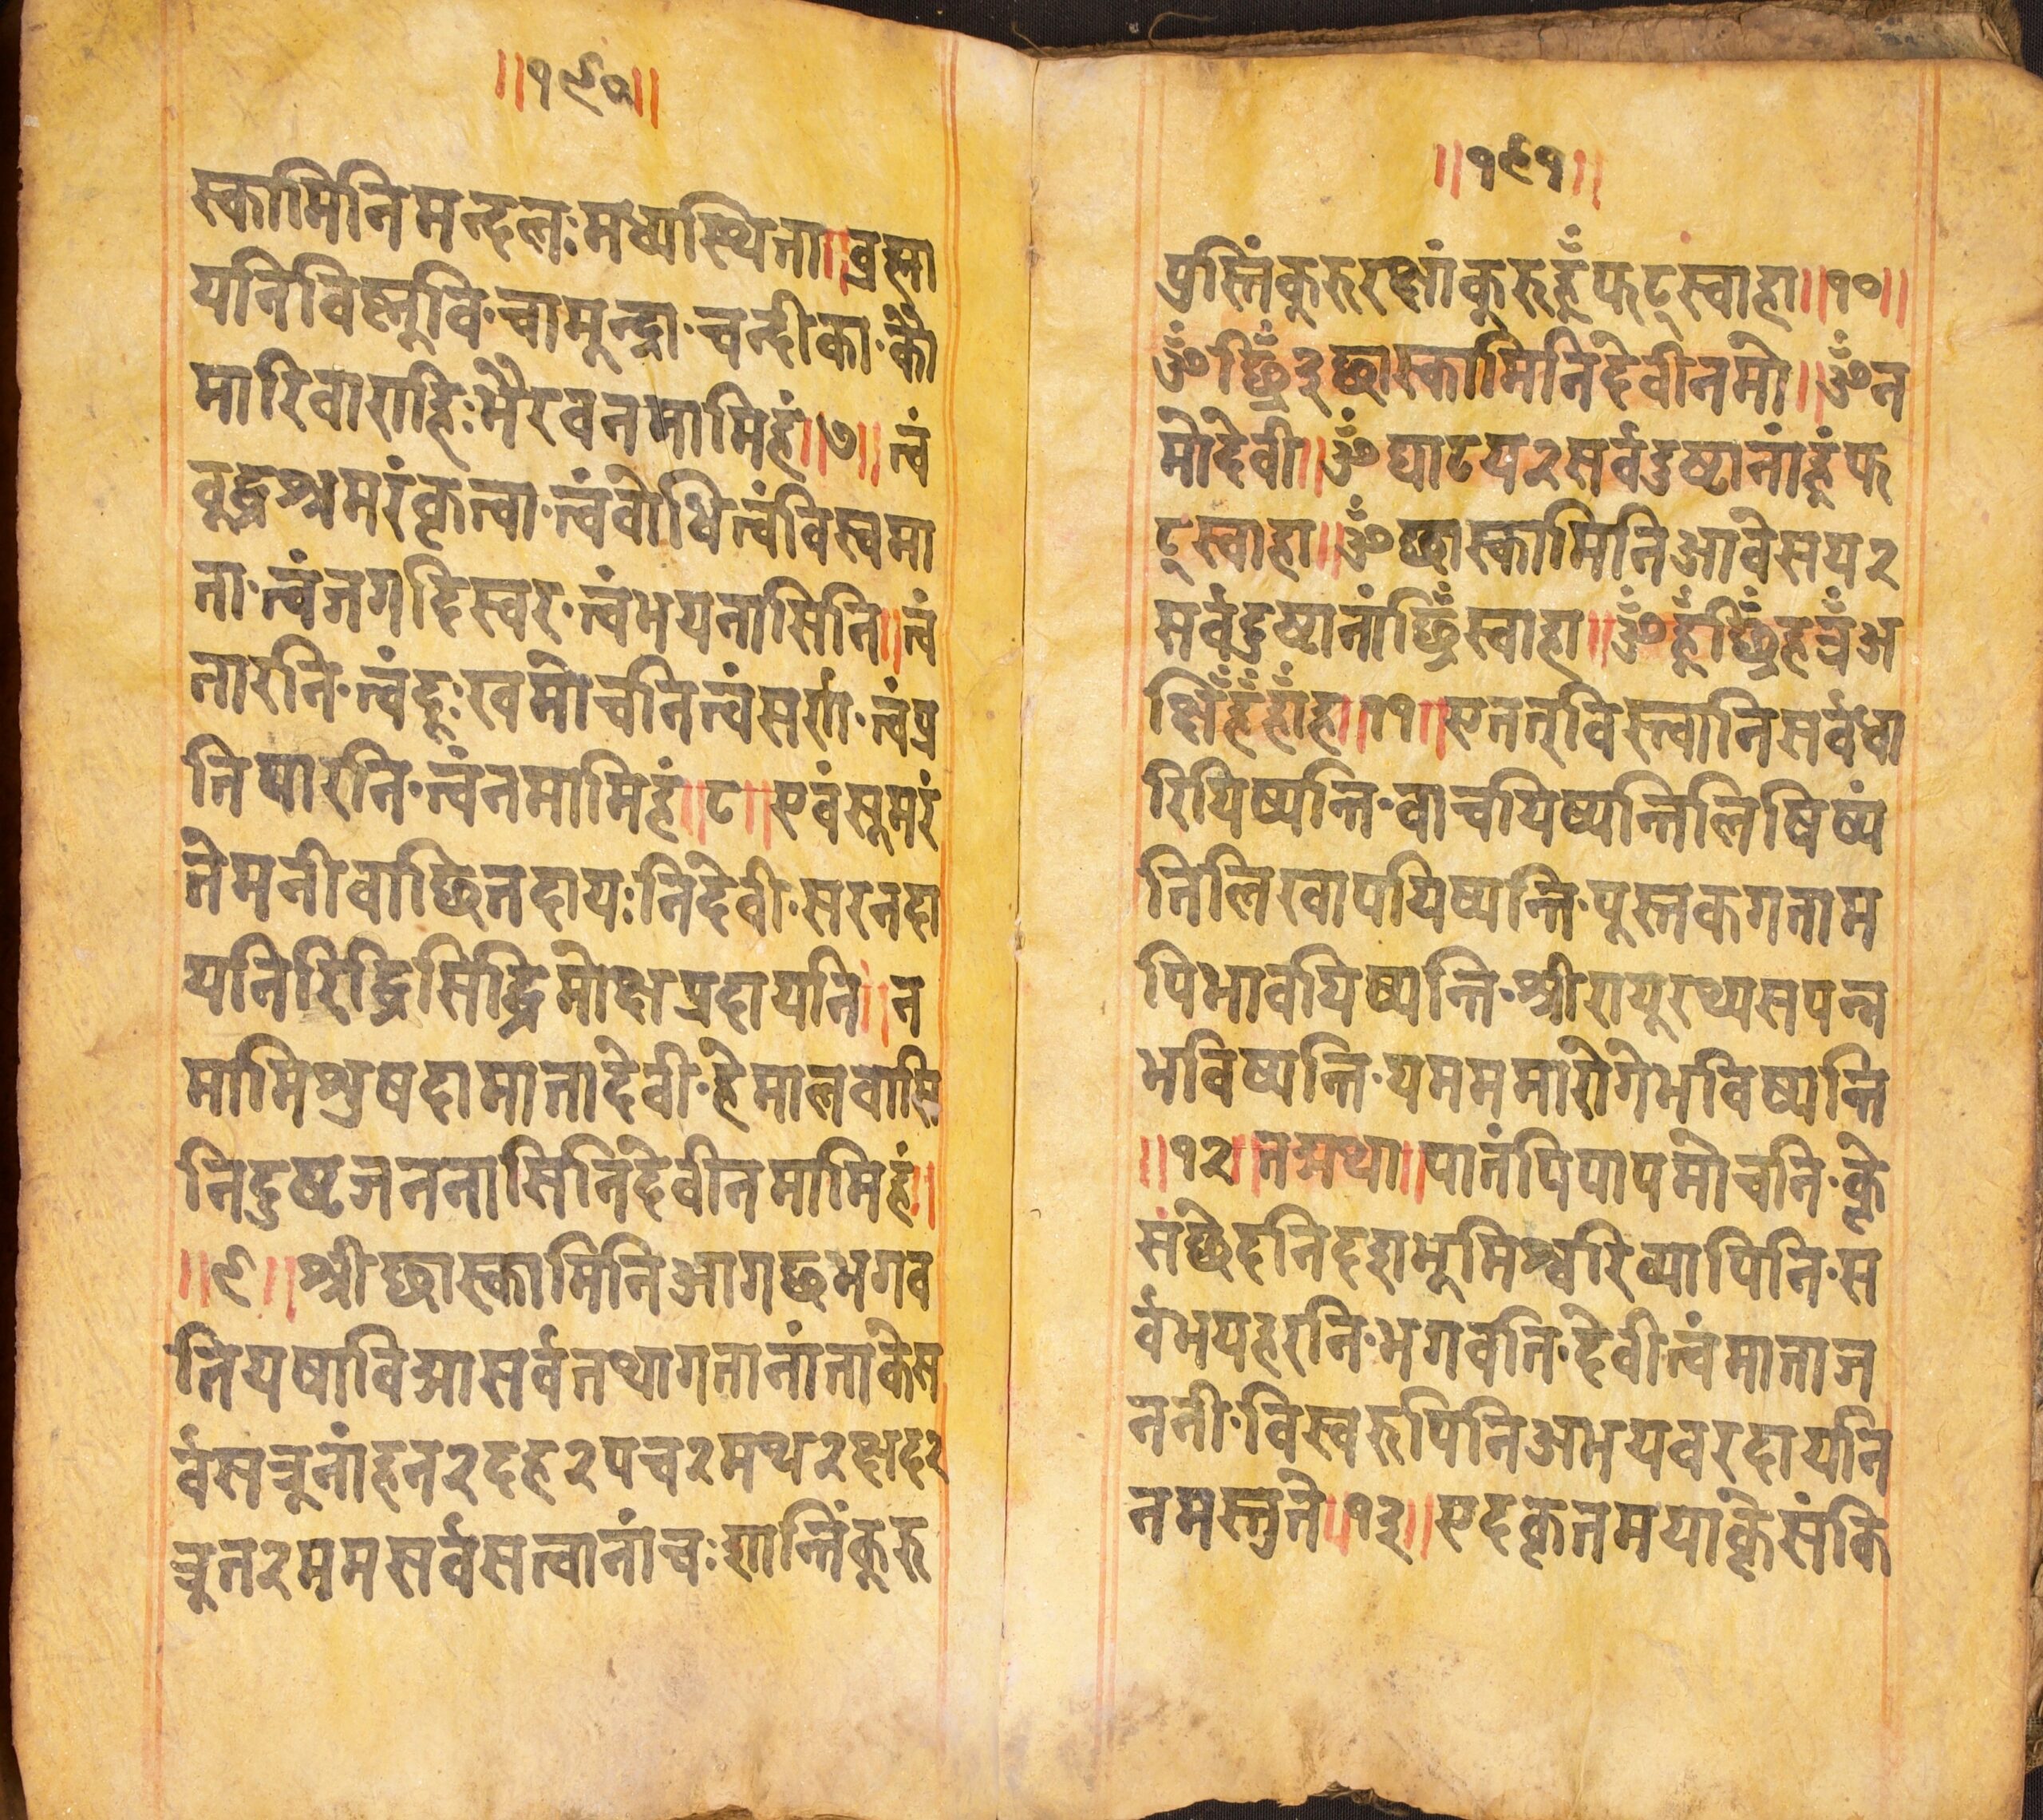 ॥१९०॥
स्कामिनिमन्दलःमध्यस्थिता॥ब्रह्मा
यनिविष्णुवि·चामुन्द्रा·चन्दीका·कौ
मारिवाराहिःभैरवनमामिहं॥७॥त्वं
बुद्धश्चमरंकृत्वा·त्वंवोधित्वंविस्वमा
ता·त्वंजगदिस्वर·त्वंभयनासिनि॥त्वं
तारनि·त्वंदूःखमोचनित्वंसर्गा·त्वंप्र
तिपारनि·त्वंनमामिहं॥८॥एवंसूमरं
तेमनीवाछितदायःनिदेवी·सरनदा
यनिरिद्धिसिद्धिमोक्षप्रदायनि॥न
मामिश्रुषदामातादेवी·हेमालवासि
निदुष्टजननासिनिदेवीनमामिहं॥
॥९॥श्रीछास्कामिनिआगछभगव
तियषाविद्यासर्वतथागतानांताकेस
र्वसत्रूनांहन२दहर२पच२मथ२क्षद२
त्रुत२ममसर्वसत्वानांचःशान्तिंकुरु
॥१९१॥
प्रस्तिंकुरुरक्षांकुरुहूँफट्स्वाहा॥१०॥
ॐछ्रिँ२छास्कामिनिदेवीनमो॥ॐन
मोदेवी॥ॐघाटय२सर्वदुष्टानांहूंफ
ट्स्वाहा॥ॐछास्कामिनिआवेसय२
सर्वदुष्टानांछ्रिँस्वाहा॥ॐहूँछ्रिँहत्रँअ
क्षिँहँहाँहा॥११॥एतत्विस्त्वानिसर्वधा
रियिष्यन्ति·वाचयिष्यन्तिलिषिष्यं
तिलिखापयिष्यन्ति·पूस्तकगताम
पिभावयिष्यन्ति·श्रीरायूरथ्यसपन्न
भविष्यन्ति·यमममारोगेभविष्यन्ति
॥१२॥तद्यथा॥पातंपिपापमोचनि·क्ले
संछेदनिदशभूमिश्वरिव्यापिनि·स
र्वभयहरनि·भगवति·देवीत्वंमाताज
ननी·विस्वरुपिनिअभयवरदायनि
नमस्तुते॥१३॥एदकृतमयांक्लेसंकि